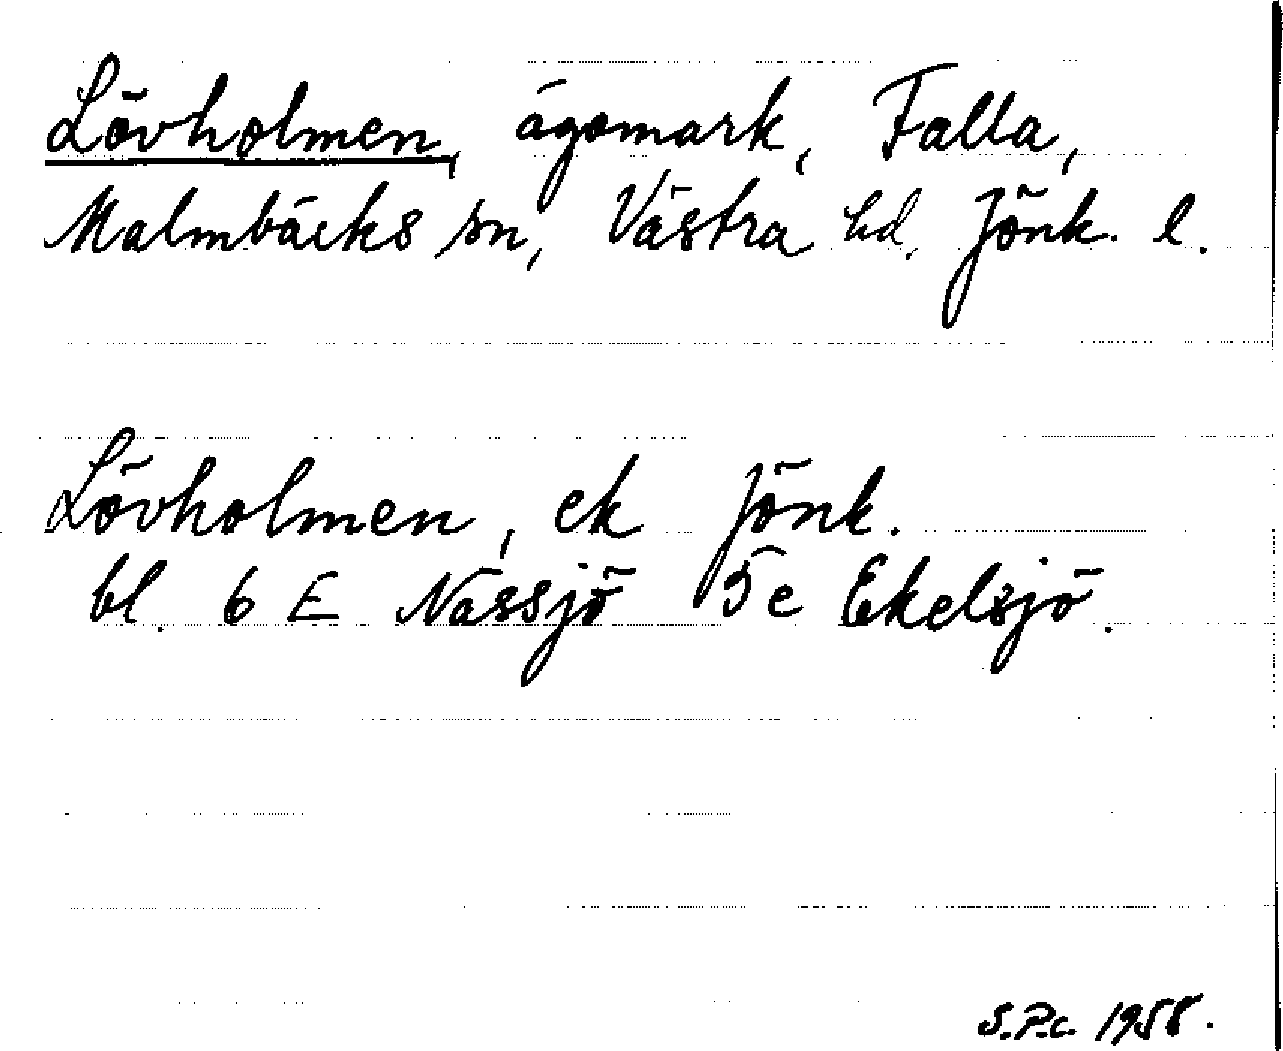 Lövholmen, ägomark, Falla,
Malmbäcks sn, Västra hd, Jönk. l.
Lövholmen, ek Jönk.
bl. 6 E Nässjö 5e Ekelsjö.
S.P.c. 1958.